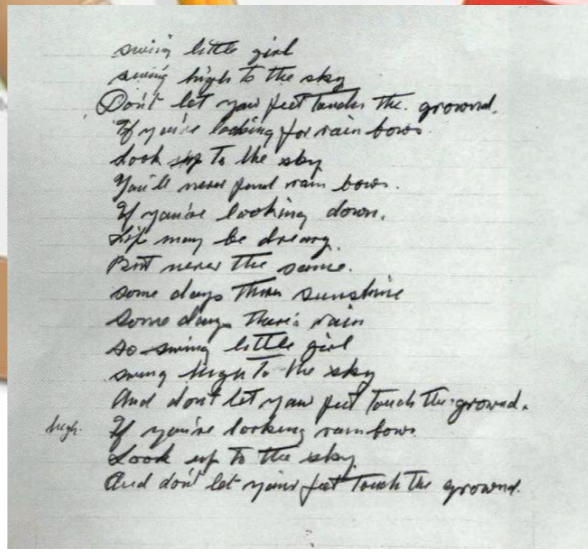 swing little girl
swing high to the sky
Don't let your feet touch the ground.
If you're looking for rain bows
Look up To the sky
You'll never find rain bows.
If you're looking down.
Life may be dreary.
But never the same.
some days there sunshine
some days there's rain
so swing little girl
swing high to the sky
And don't let your feet touch the ground.
high. If you're looking rainbows
Look up to the sky
And don't let your feet touch the ground.